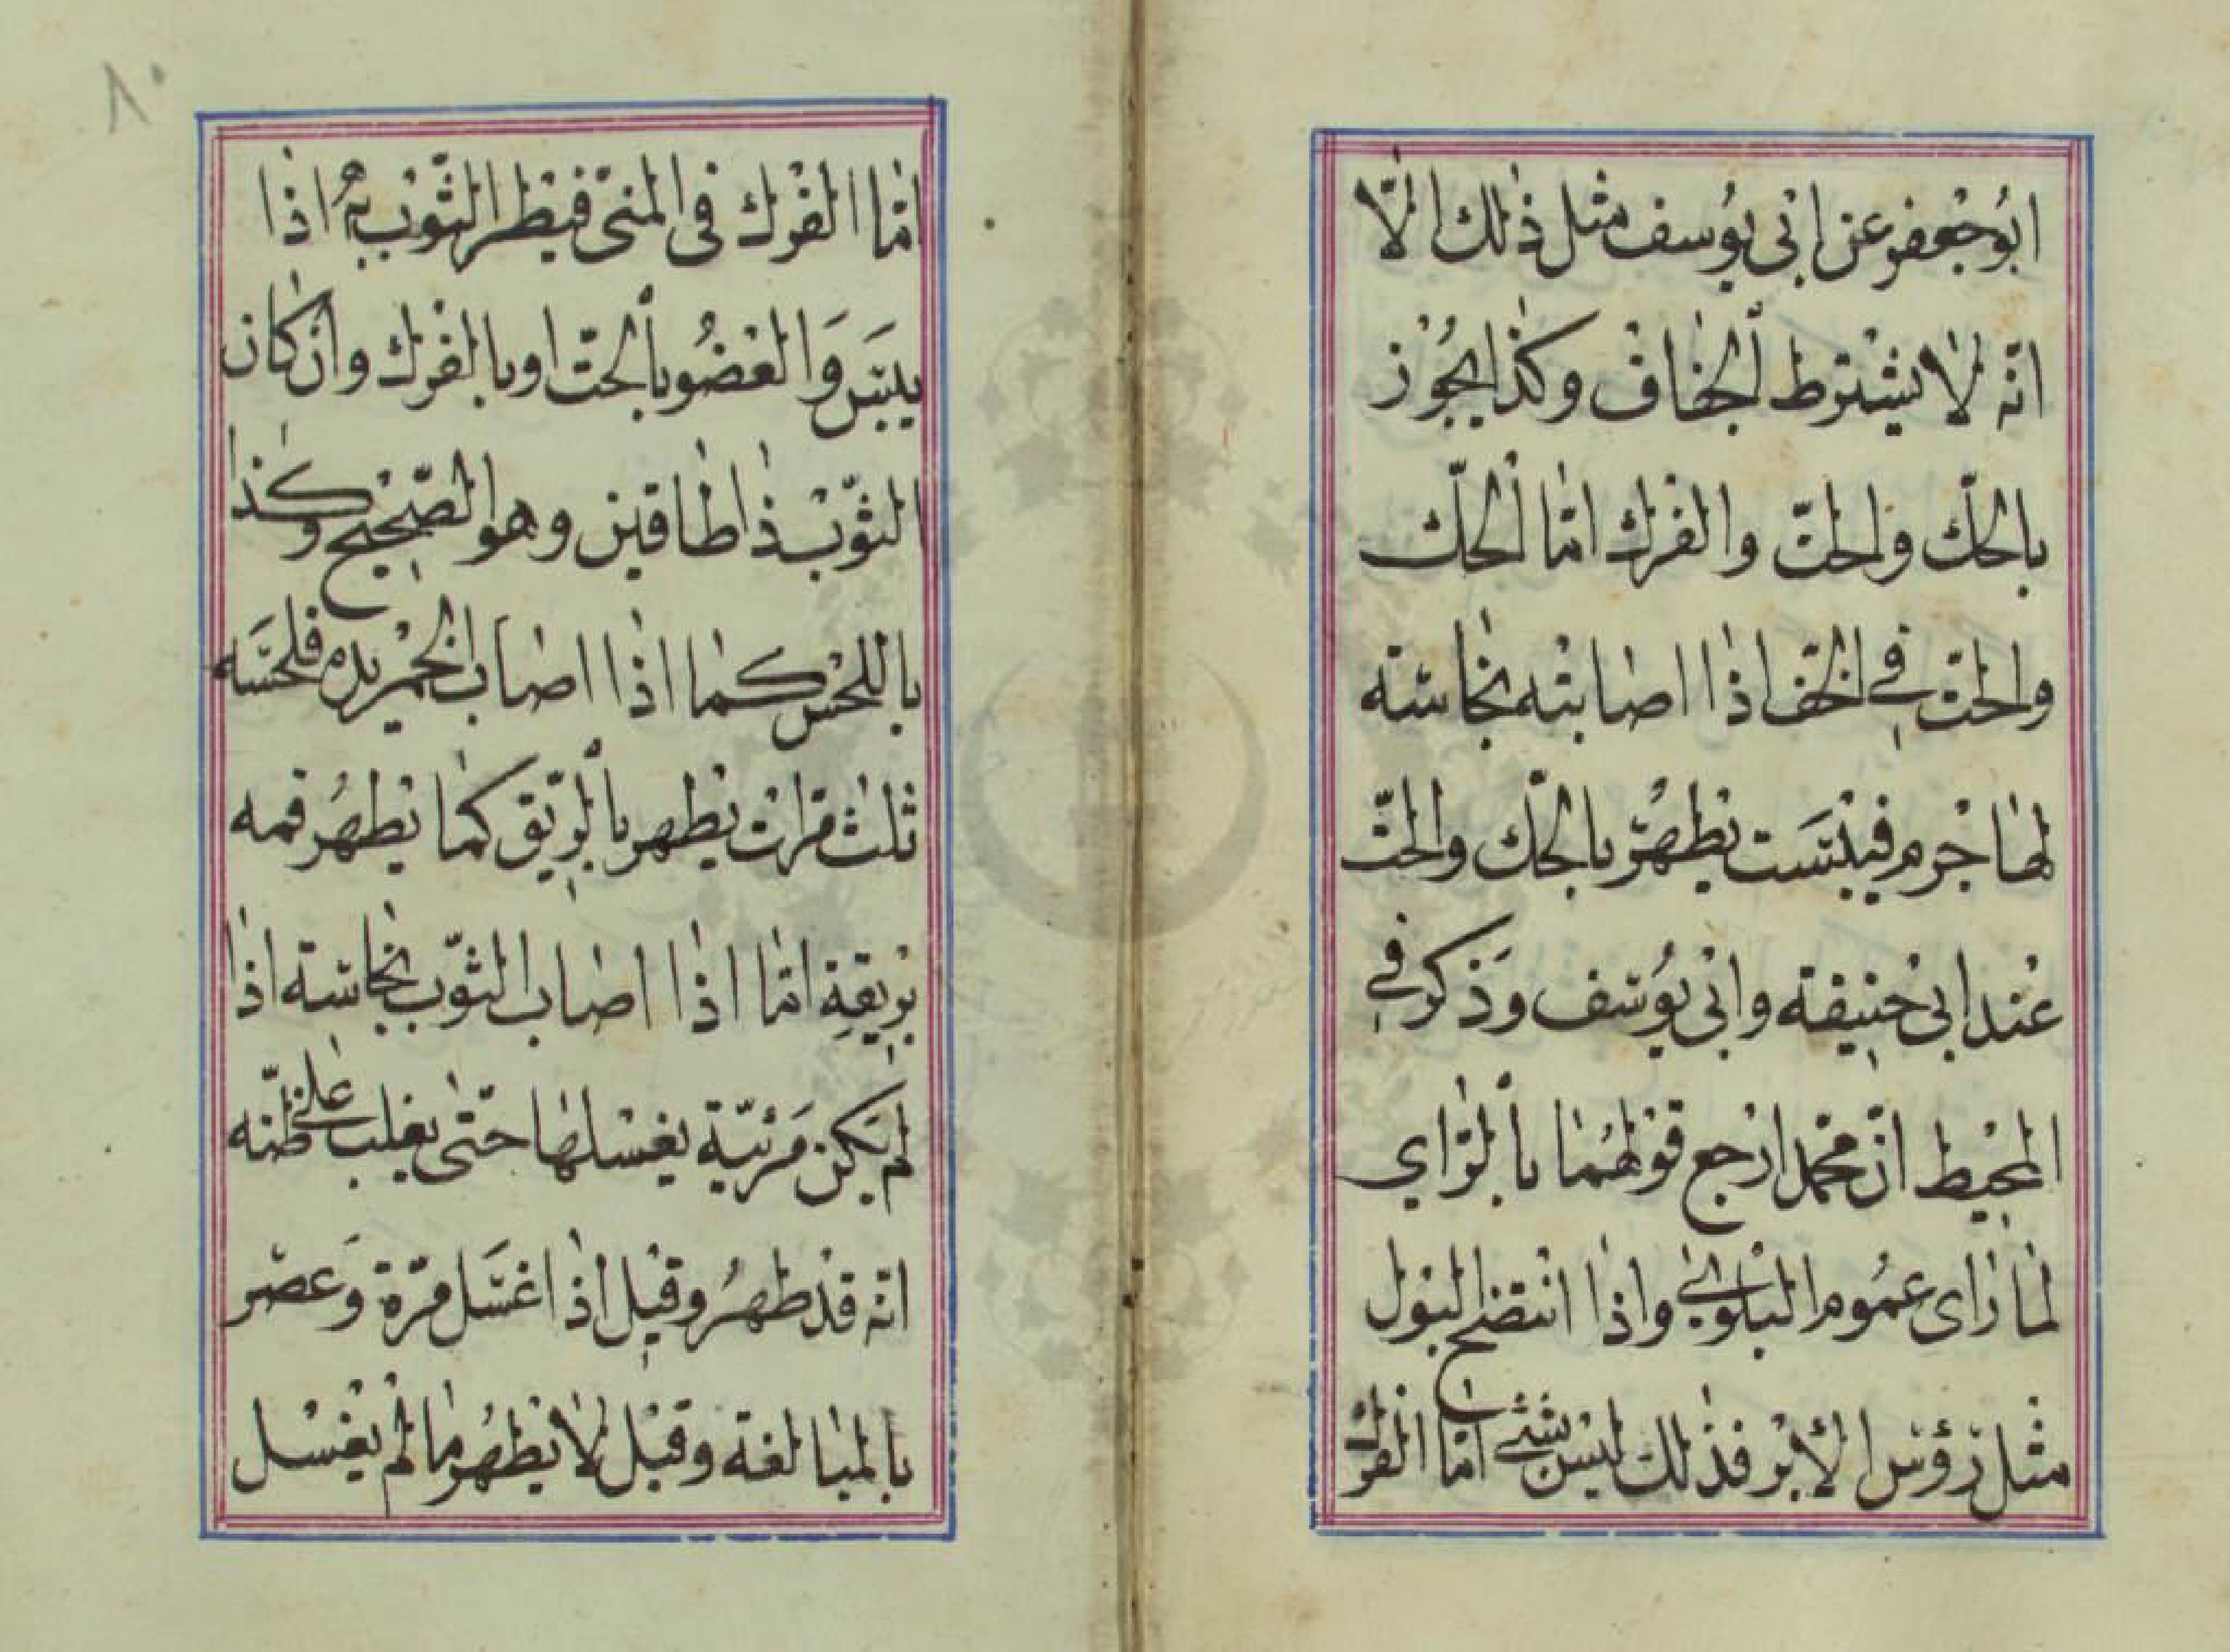 ابُوجْعفر عن ابی یوُسف مثل ذٰلك الّا
انّه لٰا یشْترط ألجفاف وکذٰا یجُوز
بالحكّ والحتّ والفرك امّا ألحكّ
والحتّ في الخفّ اذٰا اصٰابته نجٰاسة
لهٰا جْرم فیبَست یطهُر بالحكّ والحتّ
عنْد ابی حنیفة وابی یوُسف وَذکر في
المحیط انّ محّمدا رجع قولهُمٰا بألرّاي
لمٰا رٰاى عمُوم البلوىٰ واذٰا انتضح البول
مثل رؤس الأبر فذٰلك لیس بشئ امّا الفرك
امّا الفرك فى المنىّ فیطهر الثّوب به اذٰا
یبَس وَالعضُو بألحتّ اوبالفرك وان کٰان
الثّوب ذٰا طٰاقین وهو الصّحیح وکذٰا
باللحس کمٰا اذٰا اصٰاب الخمر یده فلحسَه
ثلٰث مرّات یطهر بألرّیق کمٰا یطهُر فمه
بریقهِ امّا اذٰا اصٰاب الثّوب نجٰاسة اذٰا
لم یکن مَرئیّة یغسلهٰا حتّىٰ یغلب علىٰ ظنّه
انّه قد طهُر وقیل اذٰا غسَل مرّة وَعصر
بالمبٰالغة وقیل لٰا یطهُر مٰا لم یغسل
٨٠